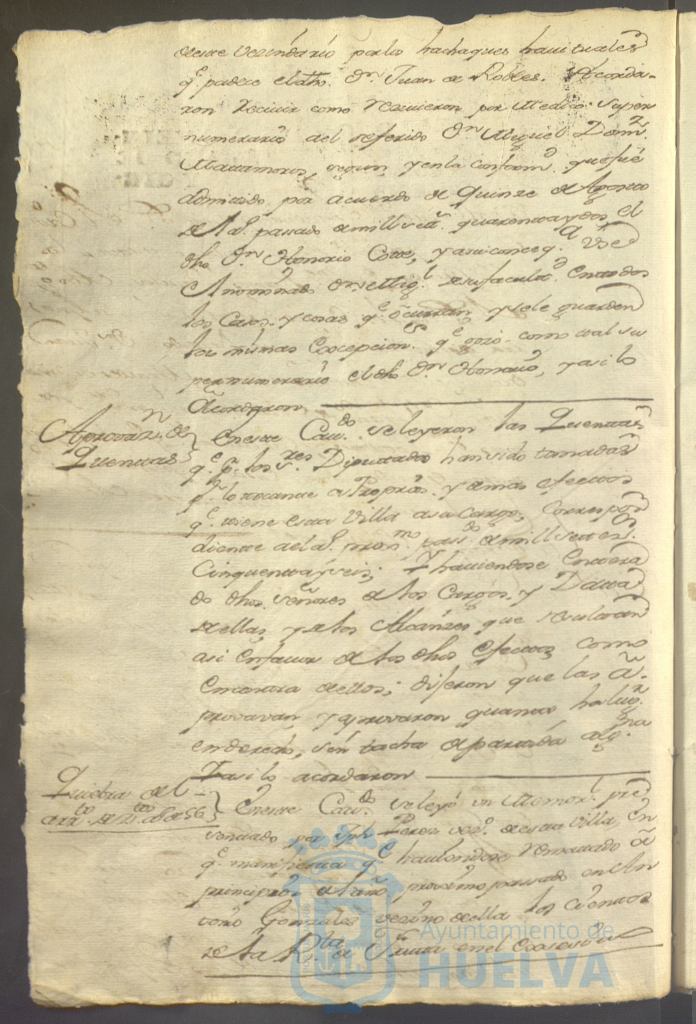 deste vezindario por los hachaques havituales
q.e padece el dho. D.n Juan de Robles. Acorda-
ron recivir como recivieron por Medico Super
numerario al referido D.n Miguel Dom.z
Matamoros, segun y en la conform.d que fué
admitido por acuerdo de Quinze de Agosto
del a.o passado de mill set.s quarenta y dos el
dho. D.n Honorio
D.n Mig.l de su facult.d en todos
los Casos y cosas q.e ocurran, y se le guarden
las mismas Excepcion.s q.e gozó como tal su
pernumerario el dho. D.n Honorio, y asi lo
Acordaron
Aprovaz.n de
Quentas
En este Cav.do se leyeron las Quentas
q.e p.r los s.res Diputados han sido tomadas
p.r lo tocante a Propios y demas efectos
q.e tiene esta Villa a su Cargo, Correspon
diente al a.o prox.mo pass.do de mill setez.s
Cinquenta y seis; Y haviendose Entera
do dhos. señores de los Cargos, y Datas
de ellas, y de los Alcanzes que resultan
asi en favor de los dhos. efectos, como
en contra dellos; dijeron que las a-
provavan, y aprovaron quanto ha lug.r
en derecho, sin tacha de partida alg.na
Y asi lo acordaron
Quiebra del
En este Cav.do se leyó un Memor.l pre
sentado por Jph. Perez vez.o de esta Villa, en
q.e manifiesta q.e haviendose rematado á
principios del año proximo passado en An
tonio Gonzales vezino de ella los Cientos
de la R.ta de Fruta en el
Ayuntamiento de
HUELVA